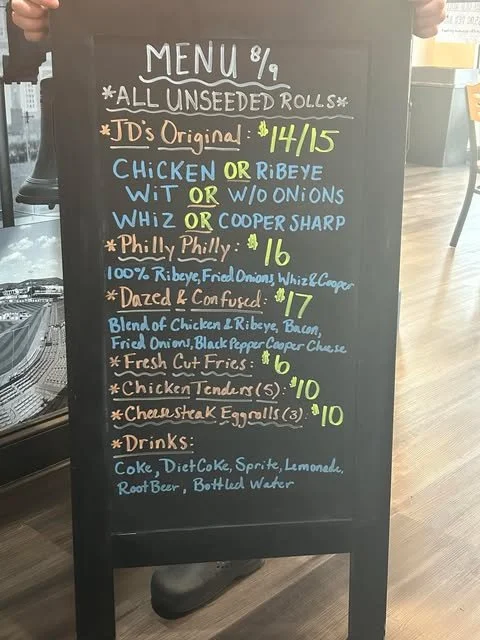 MENU 8/9
*ALL UNSEEDED ROLLS*
*JD's Original: $14/15
CHiCKEN OR RiBEYE
WiT OR W/O ONiONS
WHiZ OR COOPER SHARP
*Philly Philly: $16
100% Ribeye, Fried Onions, Whiz & Cooper
*Dazed & Confused: $17
Blend of Chicken & Ribeye, Bacon,
Fried Onions, Black Pepper Cooper Cheese
*Fresh Cut Fries: $6
*Chicken Tenders (5): $10
*Cheesesteak Eggrolls (3): $10
*Drinks:
Coke, Diet Coke, Sprite, Lemonade,
Root Beer, Bottled Water